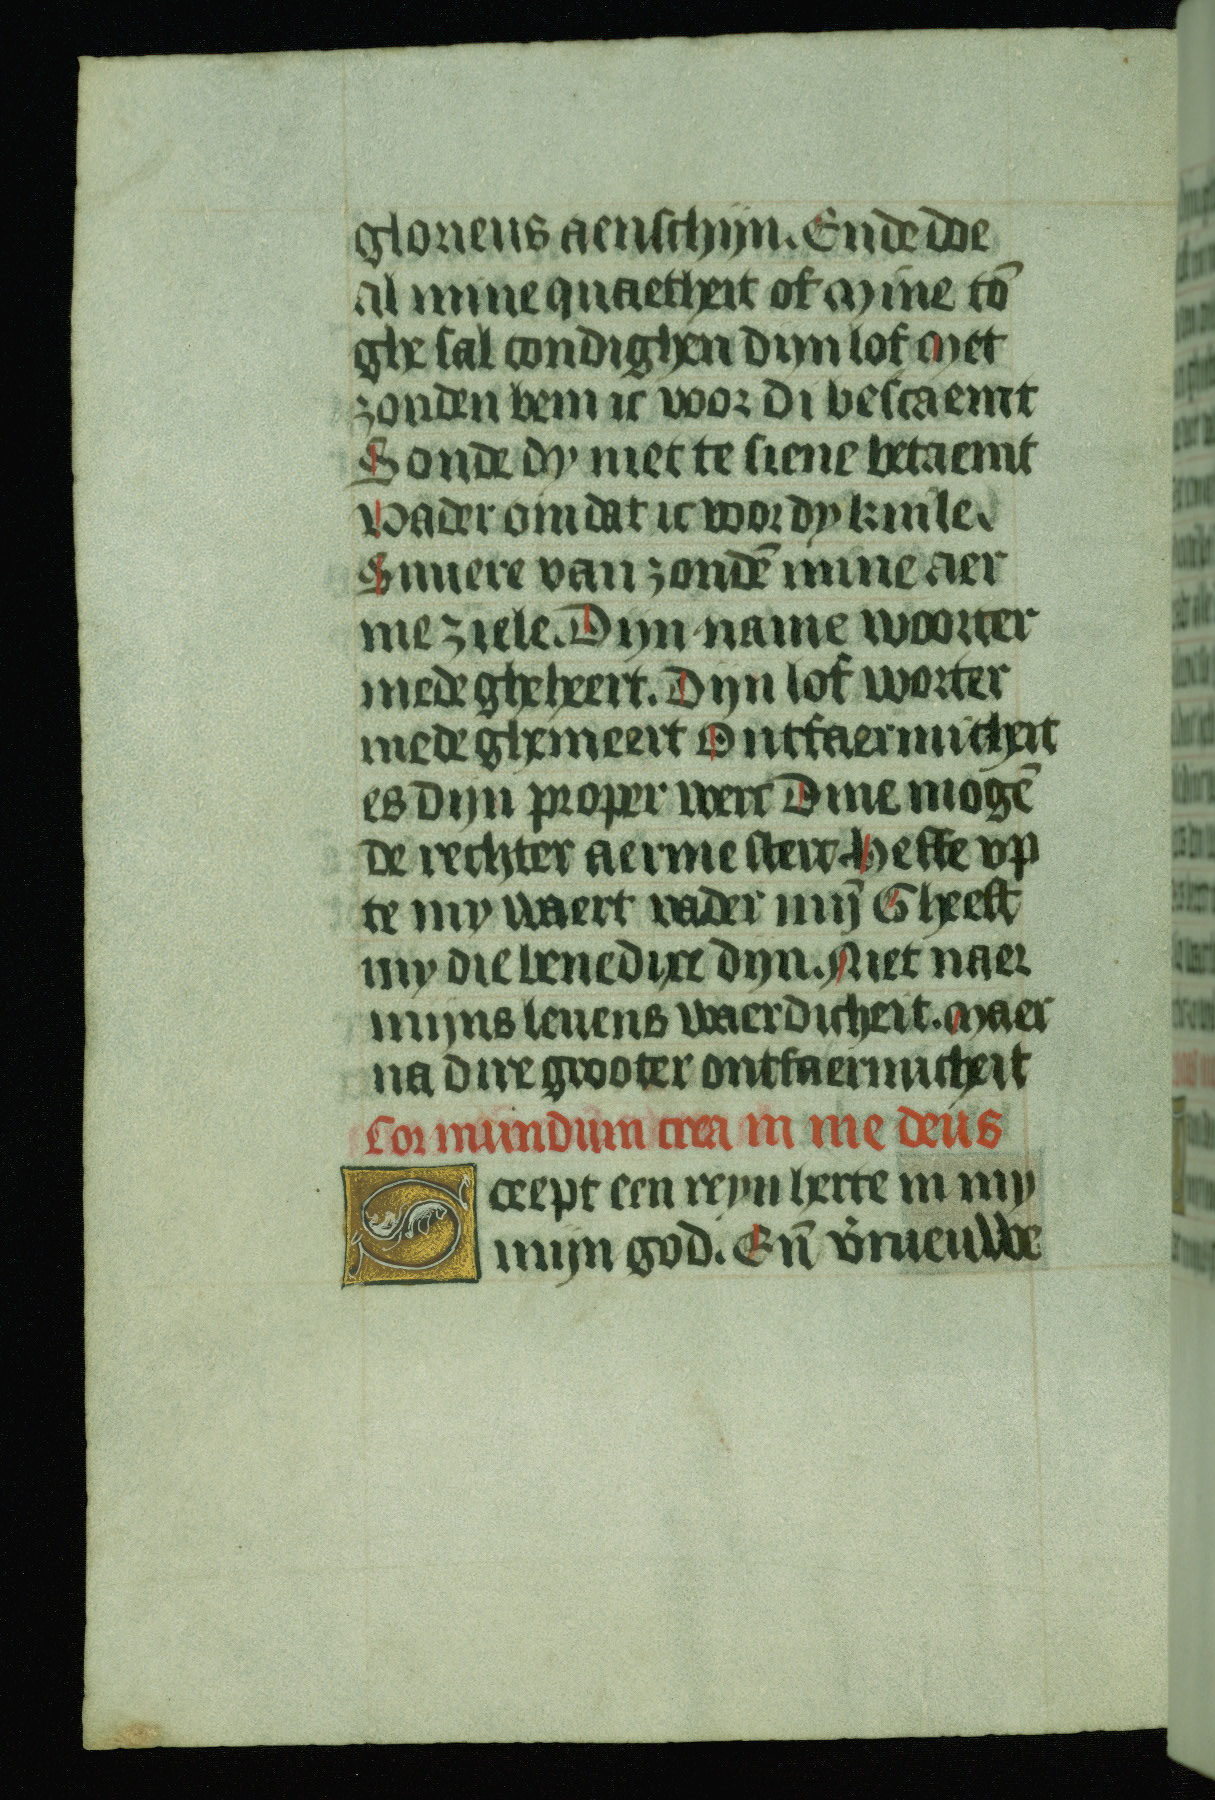 glorieus aenschijn. Ende doe
al mine quaetheit of Mine tō
ghe sal condighen dijn lof Met
zonden bem ic voor di bescaemt
Sonde dy niet te siene betaemt
Vader om dat ic voor dy knile
Suuere van zondē mine aer
me ziele. Dijn name woorter
mede gheheert. Dijn lof worter
mede ghemeert Ontfaermicheit
es dijn proper wert Dine mogē
de rechter aerme stert Heffe vp
te my waert vader mij̄ Gheeft
my die benedixe dijn. Niet naer
mijns leuens waerdicheit. Maer
na dire grooter ontfaermicheit
Cor mundum crea in me deus
Sceept een reyn herte in my
mijn god. En̄ v̓nieuwe